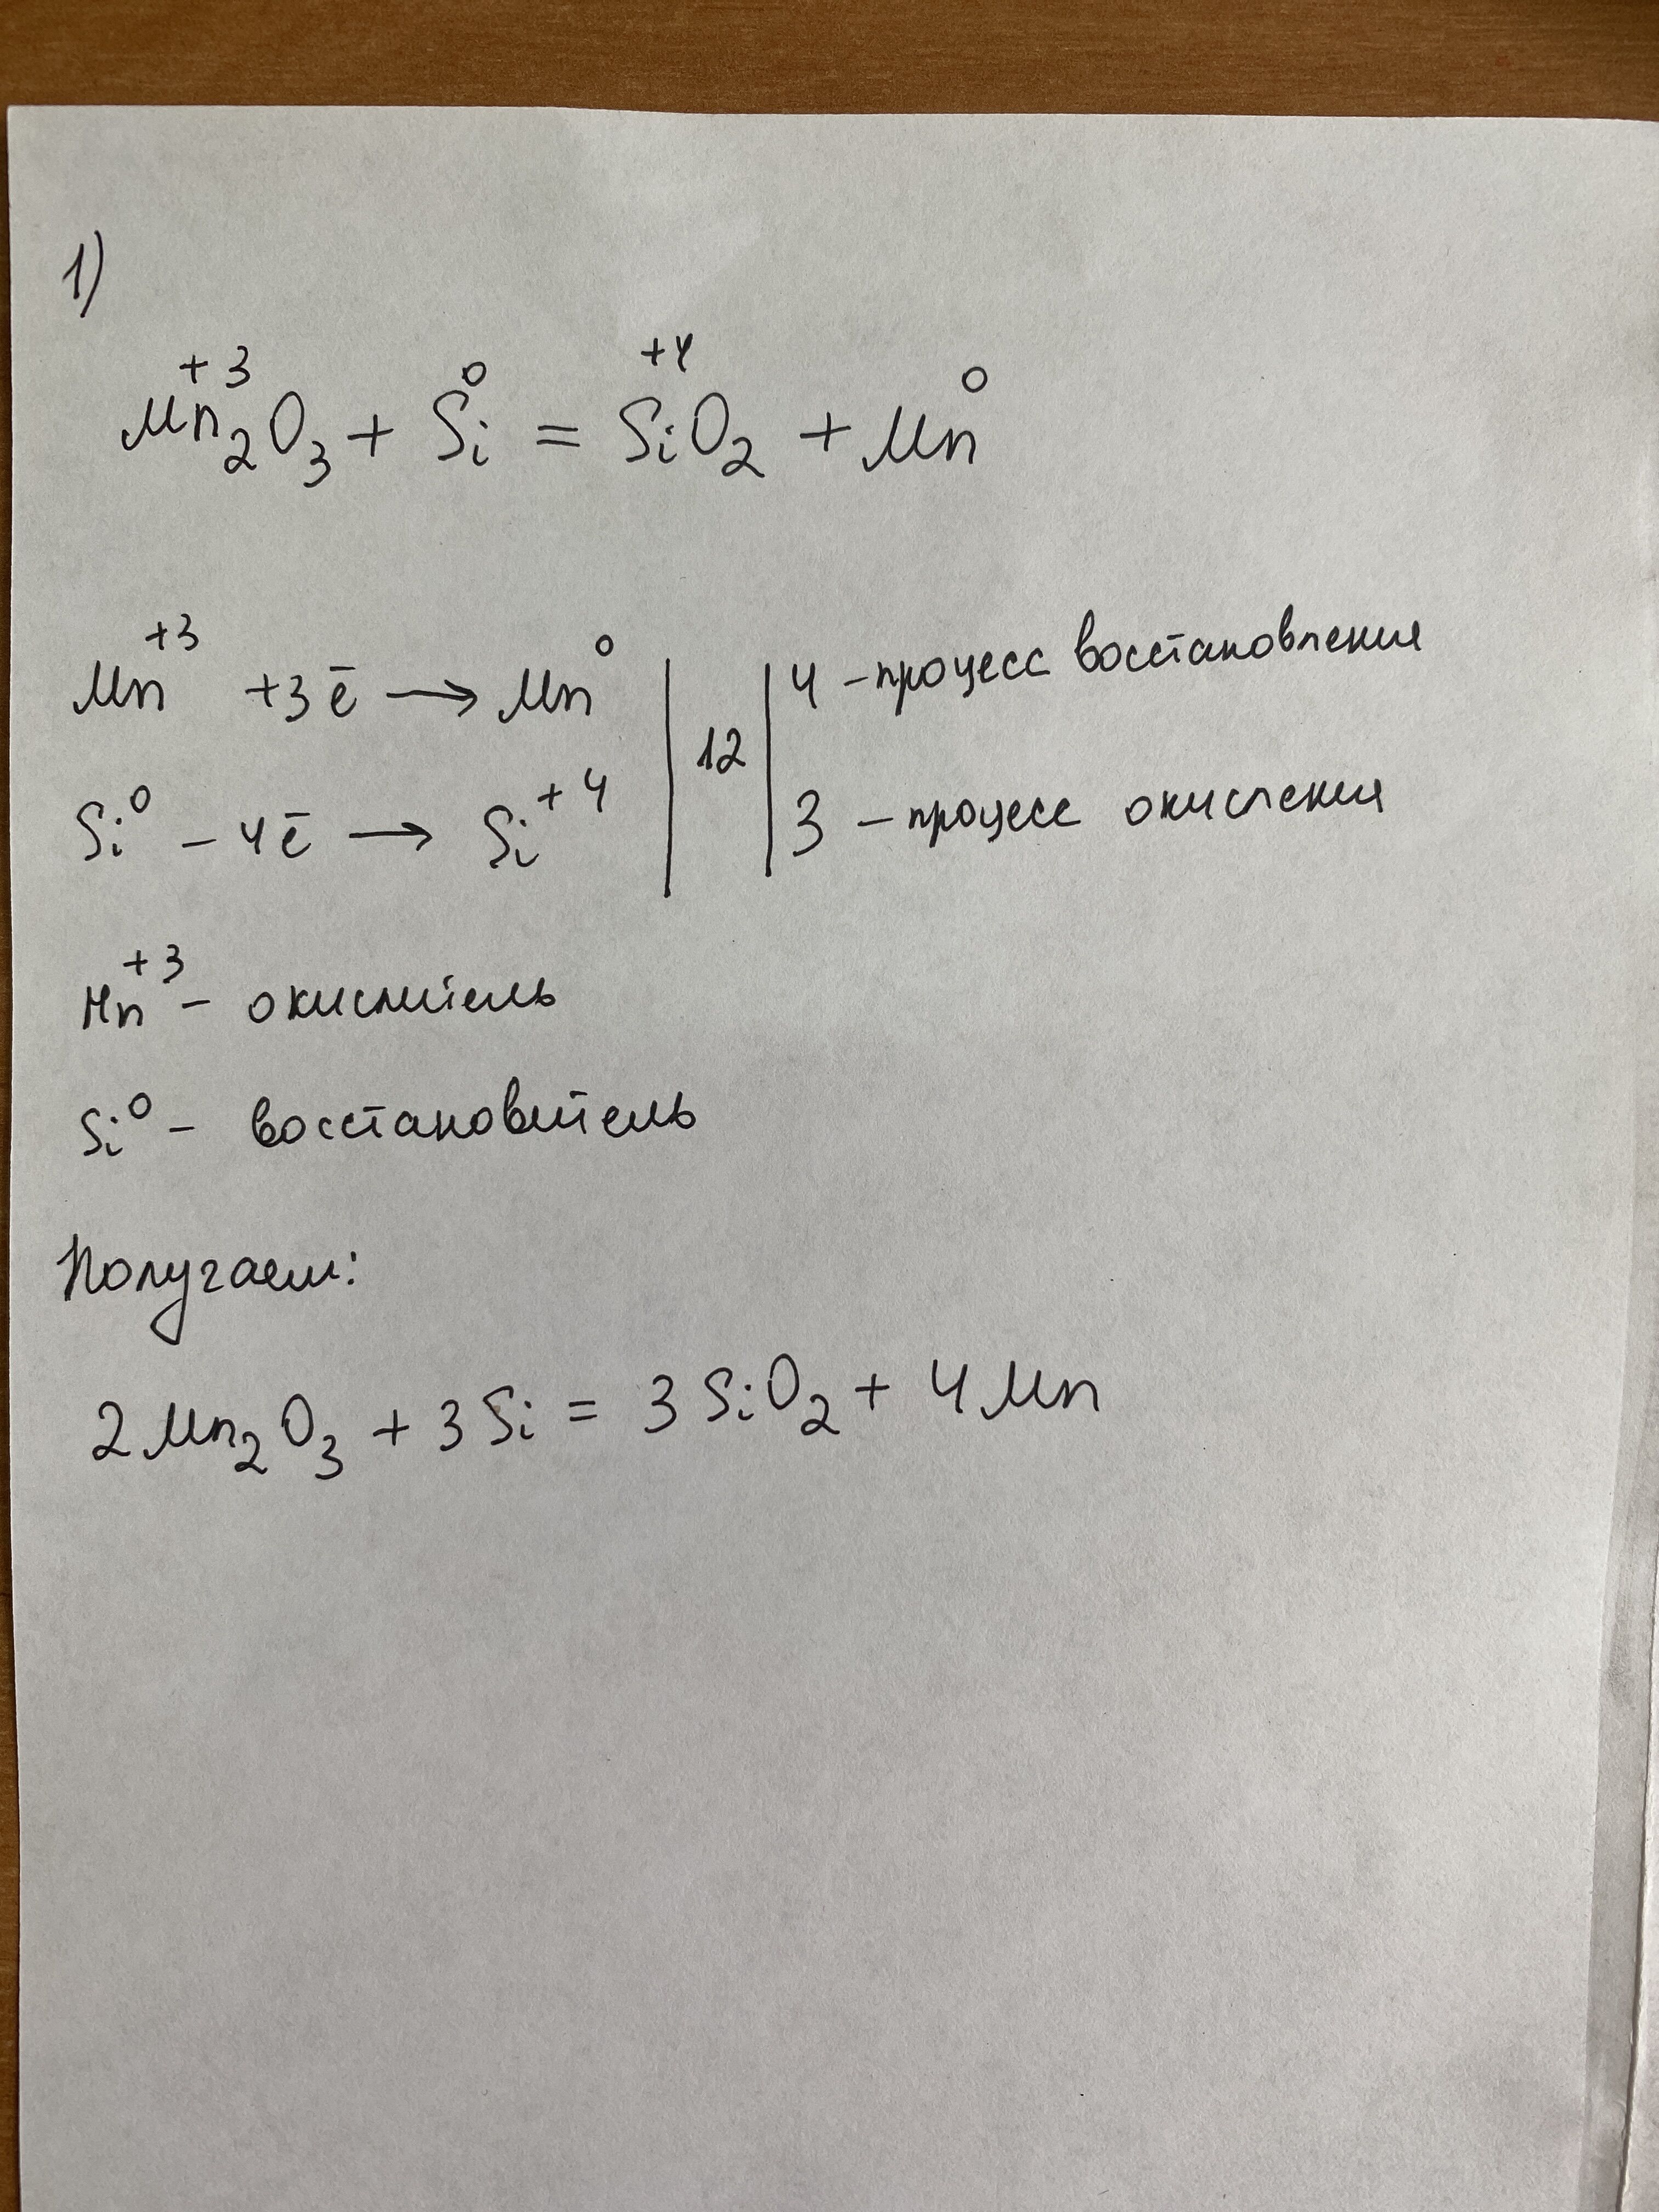 1)
+3 0 +4 0
Mn₂O₃ + Si = SiO₂ + Mn
Mn⁺³ +3ē → Mn⁰ | 12 | 4 – процесс восстановления
Si⁰ – 4ē → Si⁺⁴ | | 3 – процесс окисления
Mn⁺³ – окислитель
Si⁰ – восстановитель
Получаем:
2Mn₂O₃ + 3Si = 3SiO₂ + 4Mn